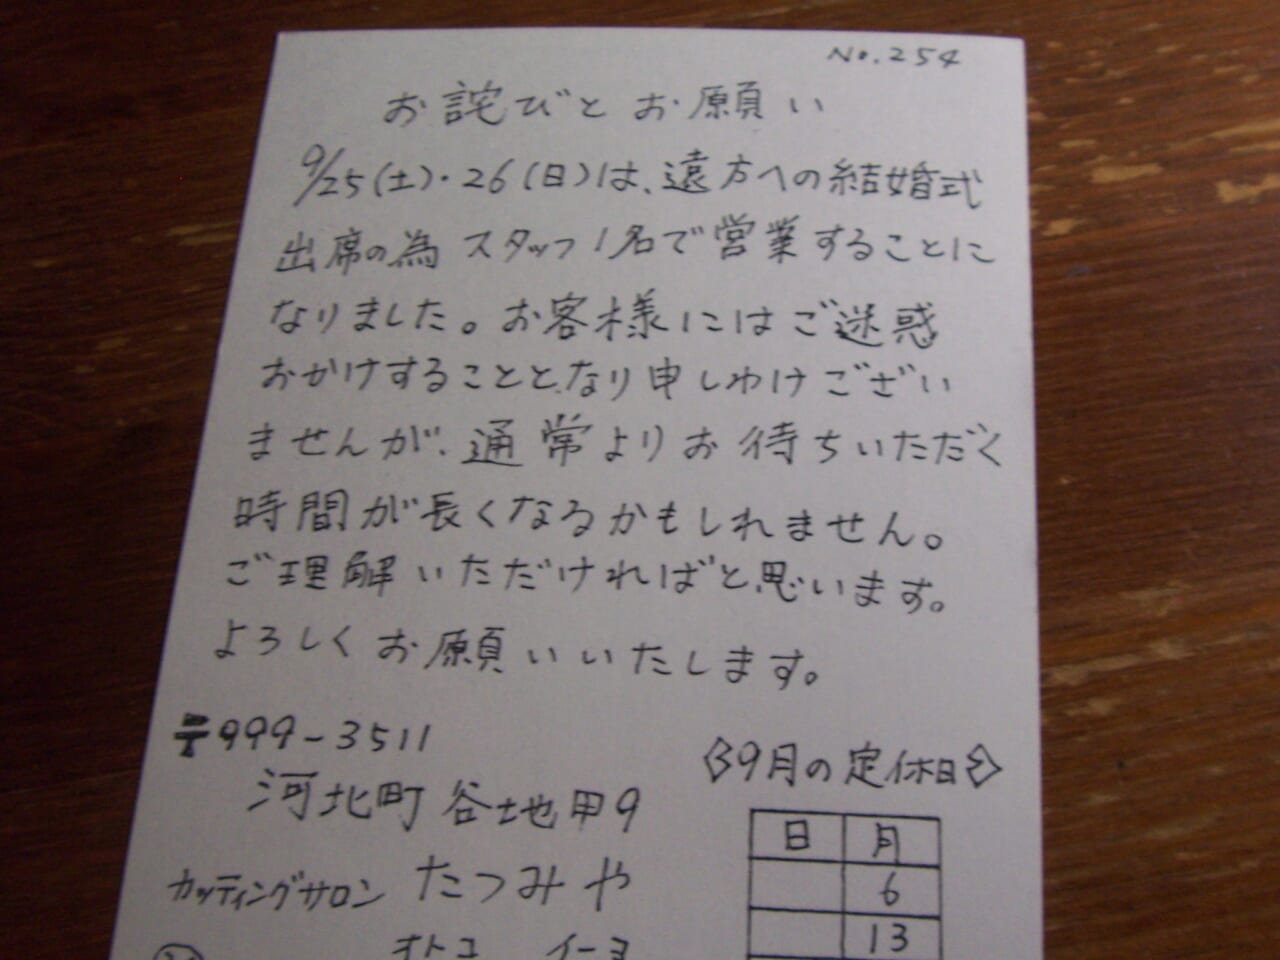 No.254
お詫びとお願い
9/25(土)・26(日)は、遠方への結婚式
出席の為 スタッフ1名で営業することに
なりました。お客様にはご迷惑
おかけすることとなり申しわけござい
ませんが、通常よりお待ちいただく
時間が長くなるかもしれません。
ご理解いただければと思います。
よろしくお願いいたします。
〒999-3511
河北町谷地甲9
カッティングサロン たつみや
オトコ イーヨ
9月の定休日
日 月
6
13